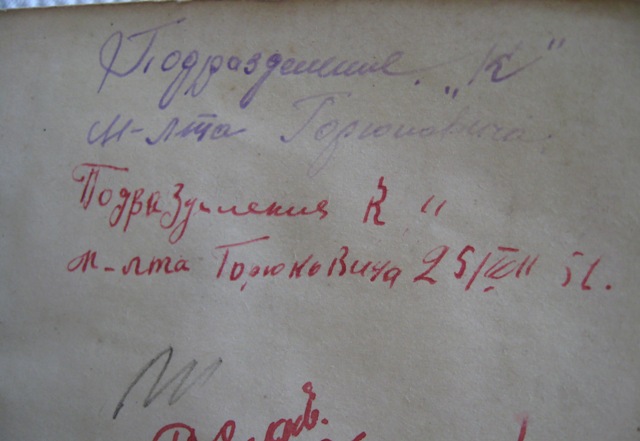 Подразделение „К"
м-лта Горюновича
Подразделения К "
м-лта Горюновича 25/VIII 51.